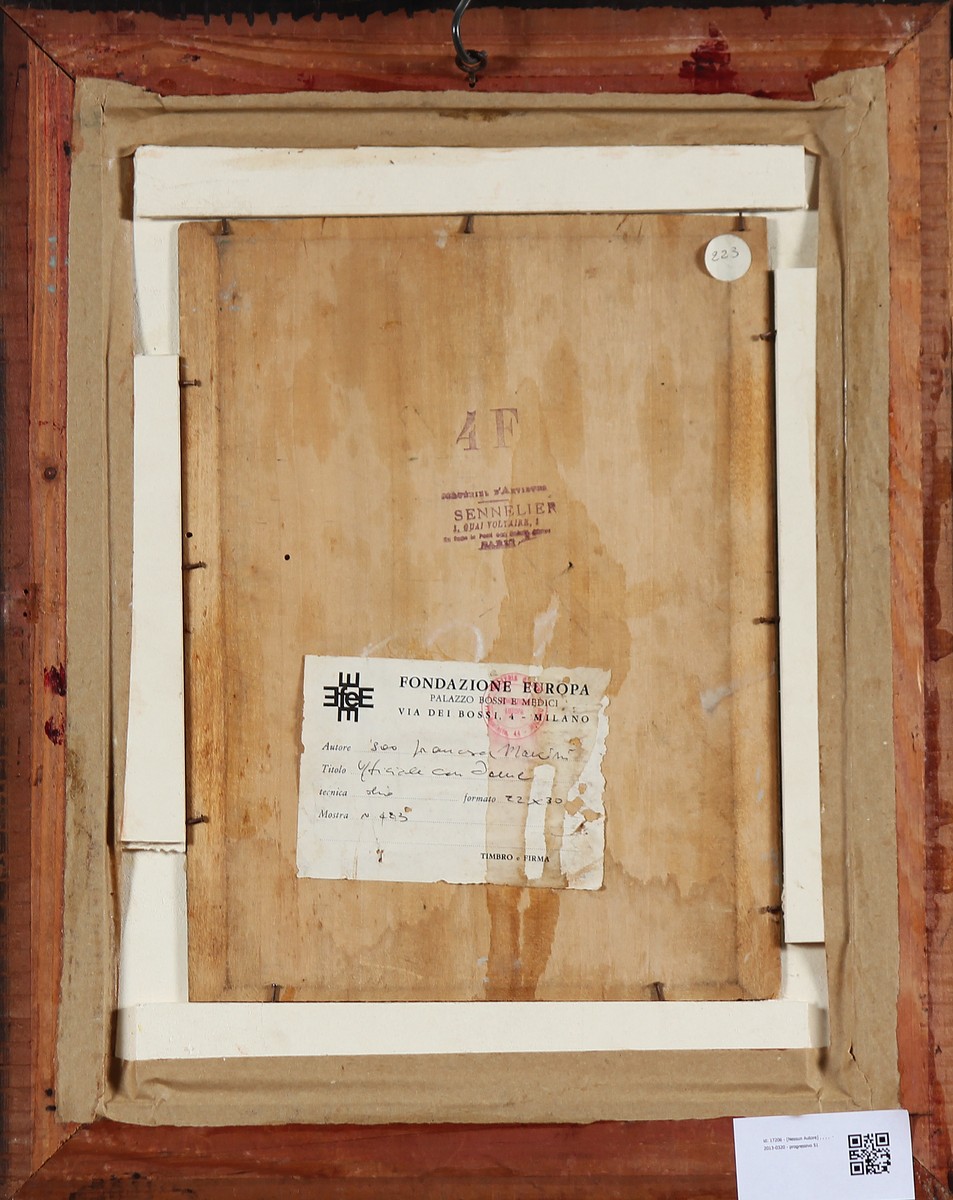 223
4F
SENNELIER
3, QUAI VOLTAIRE, 3
PARIS
FONDAZIONE EUROPA
PALAZZO BOSSI E MEDICI
VIA DEI BOSSI, 4 - MILANO
Autore Francesco Mancini
Titolo Ufficiale con Dame
tecnica olio formato 22x30
Mostra N 423
TIMBRO e FIRMA
id: 17206 - [Nessun Autore]
2013-0320 - progressivo 51